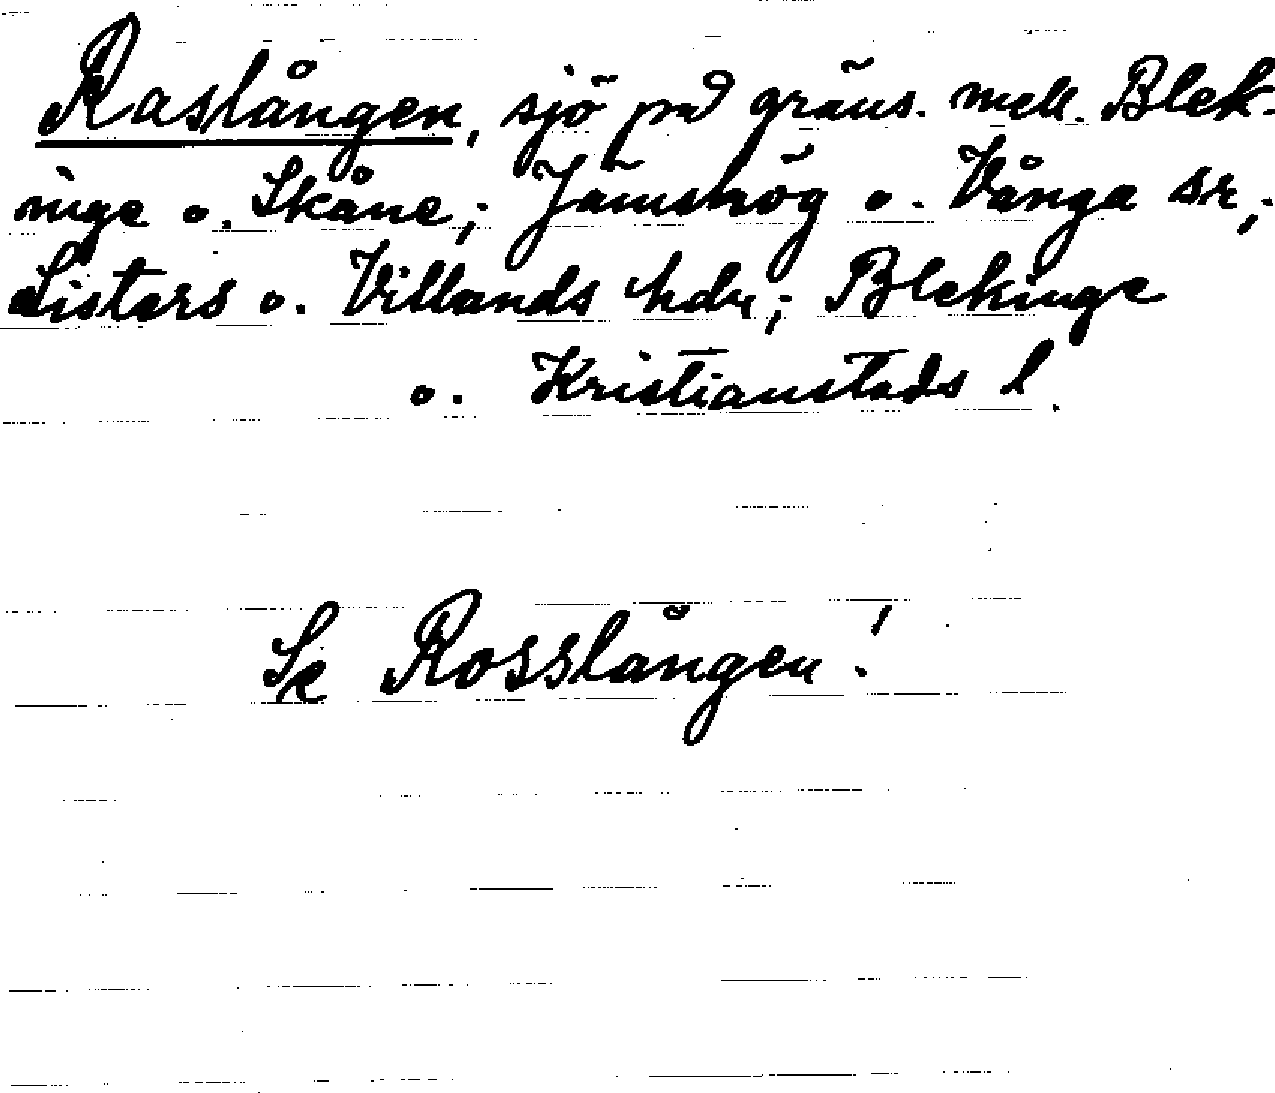 Raslången, sjö på gräns. mell. Blek-
inge o. Skåne; Jämshög o. Vånga sr;
Listers o. Villands hdr; Blekinge
o. Kristianstads l.
Se Rosslången!